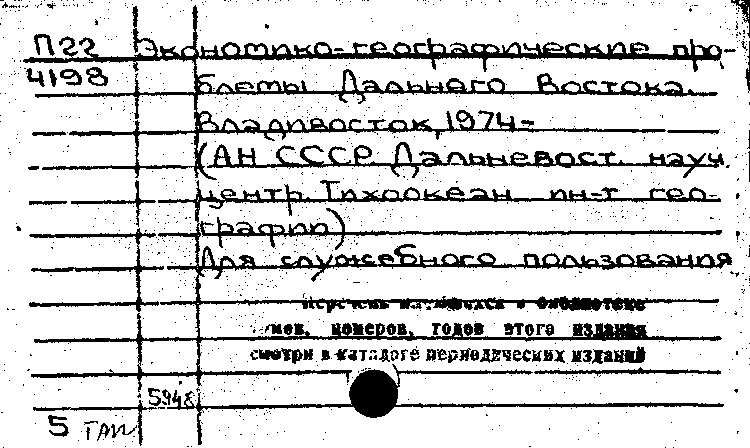 П22 Экономико-географические про-
4198 блемы Дальнего Востока.
Владивосток, 1974-
(АН СССР. Дальневост. науч.
центр. Тихоокеан. ин-т гео-
графии)
Для служебного пользования
Перечень имеющихся в библиотеке
томов, номеров, годов этого издания
смотри в каталоге периодических изданий
5948
5